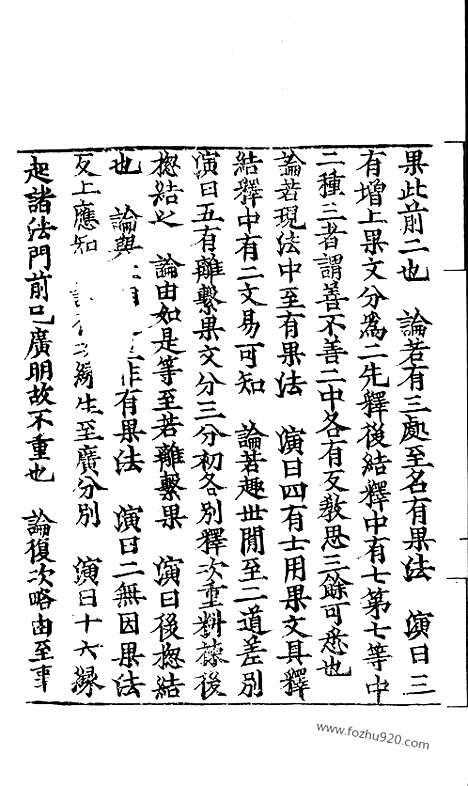 果此前二也 論若有三處至名有果法 演曰三
有增上果文分為二先釋後結釋中有七第七等中
二種三者謂善不善二中各有友教思三餘可悉也
論若現法中至有果法 演曰四有士用果文具釋
結釋中有二文易可知 論若趣世間至二道差別
演曰五有離繫果文分三分初各別釋次重料揀後
揔結之 論由如是等至若離繫果 演曰後揔結
也 論與 非有果法 演曰二無因果法
反上應知 緣生至廣分別 演曰十六緣
起諸法門前已廣明故不重也 論復次略由至事
www.fozhu920.com